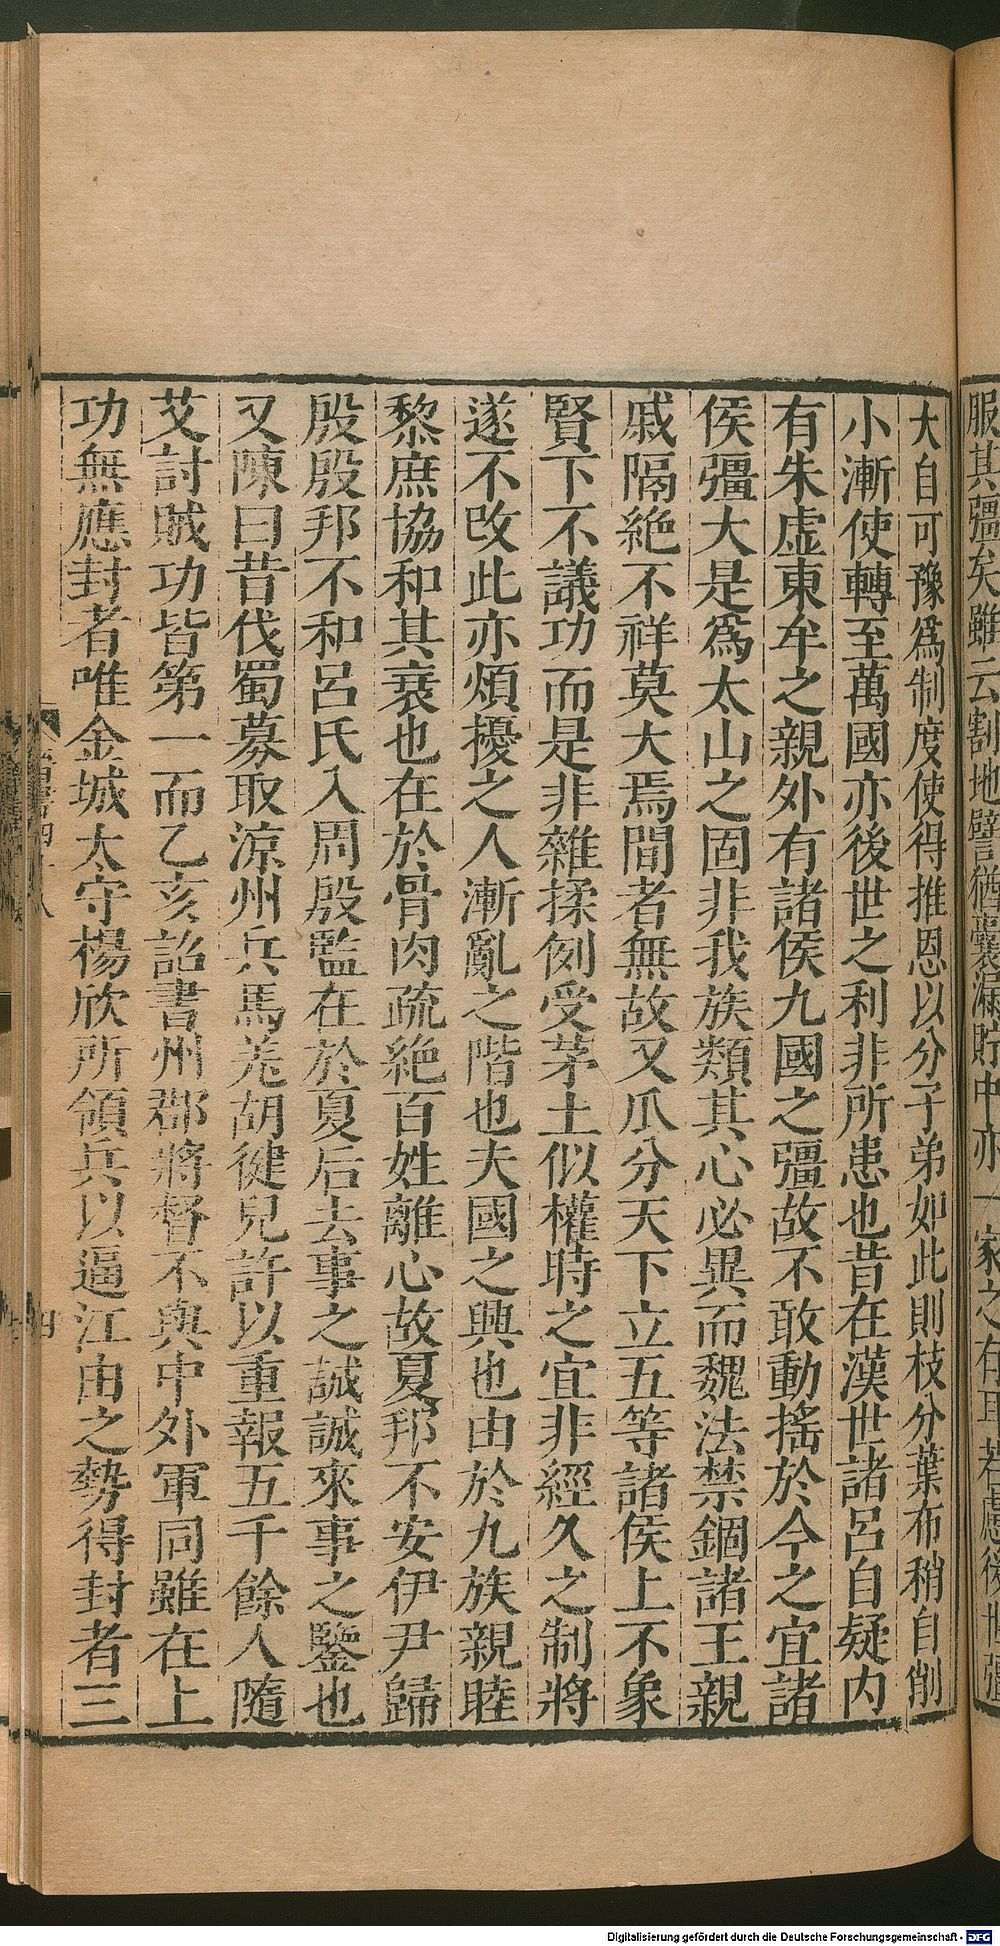 服其彊矣雖云割地譬猶囊漏貯中亦一家之有耳若慮後世彊
大自可豫爲制度使得推恩以分子弟如此則枝分葉布稍自削
小漸使轉至萬國亦後世之利非所患也昔在漢世諸呂自疑内
有朱虚東牟之親外有諸侯九國之彊故不敢動搖於今之宜諸
侯彊大是爲太山之固非我族類其心必異而魏法禁錮諸王親
戚隔絶不祥莫大焉間者無故又瓜分天下立五等諸侯上不象
賢下不議功而是非雜揉例受茅土似權時之宜非經久之制將
遂不改此亦煩擾之人漸亂之階也夫國之興也由於九族親睦
黎庶協和其衰也在於骨肉疏絶百姓離心故夏邦不安伊尹歸
殷殷邦不和呂氏入周殷監在於夏后去事之誡誠來事之鑒也
又陳曰昔伐蜀募取涼州兵馬羌胡健兒許以重報五千餘人隨
艾討賊功皆第一而乙亥詔書州郡將督不與中外軍同雖在上
功無應封者唯金城太守楊欣所領兵以逼江由之勢得封者三
晉書四十八
四
Digitalisierung gefördert durch die Deutsche Forschungsgemeinschaft - DFG